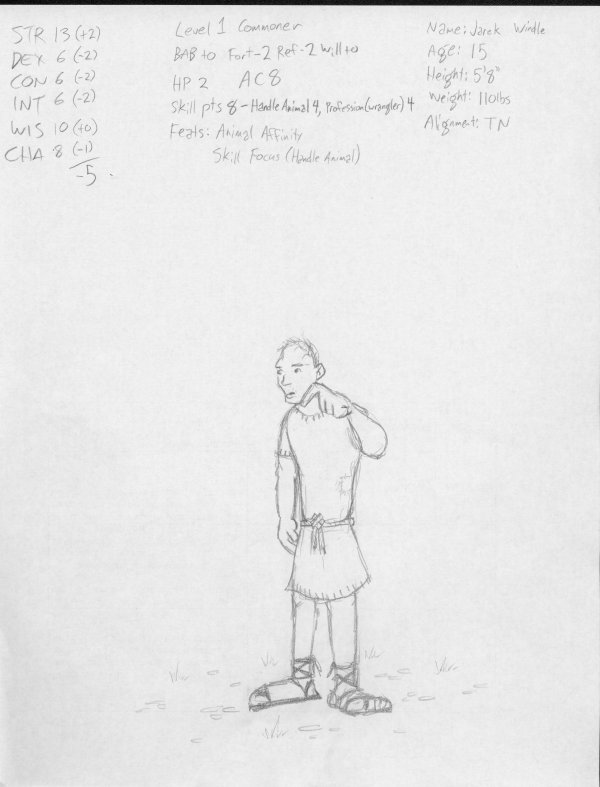 STR 13 (+2)
DEX 6 (-2)
CON 6 (-2)
INT 6 (-2)
WIS 10 (+0)
CHA 8 (-1)
-5
Level 1 Commoner
BAB +0 Fort -2 Ref -2 Will +0
HP 2 AC 8
Skill pts 8 - Handle Animal 4, Profession (wrangler) 4
Feats: Animal Affinity
Skill Focus (Handle Animal)
Name: Jarek Windle
Age: 15
Height: 5'8"
Weight: 110lbs
Alignment: TN